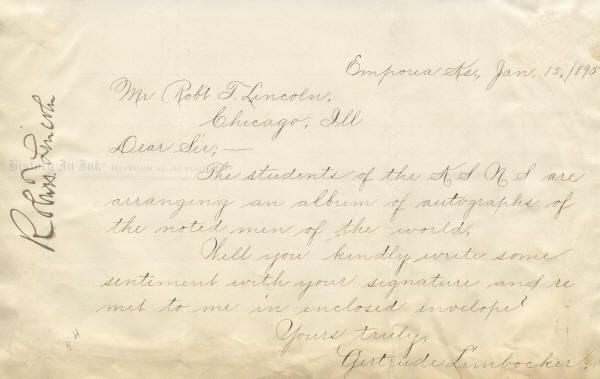 Emporia Ks., Jan. 15, 1895
Mr Robt T. Lincoln,
Chicago, Ill
Dear Sir; —
The students of the K S N S are
arranging an album of autographs of
the noted men of the world.
Will you kindly write some
sentiment with your signature and re
met to me in enclosed envelope?
Yours truly,
Gertrude Limbocker.
Robert T. Lincoln
History In Ink® HISTORICAL AUTOGRAPHS